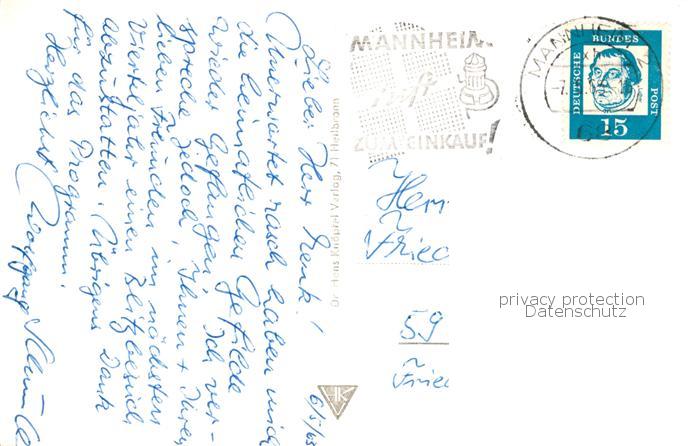 Lieber Herr Henk!
Unerwartet rasch haben mich
die heimatlichen Gefilde
wieder gefangen. Ich ver-
spreche jedoch, Ihnen + Ihren
lieben Freunden im nächsten
Vierteljahr einen Blitzbesuch
abzustatten. Übrigens Dank
für das Programm.
Herzlichst Wolfgang
6/5/63
Dr. Hans Knöpfel Verlag, 71 Heilbronn
MANNHEIM
ZUM EINKAUF!
MANNHEIM
68
DEUTSCHE BUNDES POST
15
Herr
Fried
59
Fried
privacy protection
Datenschutz